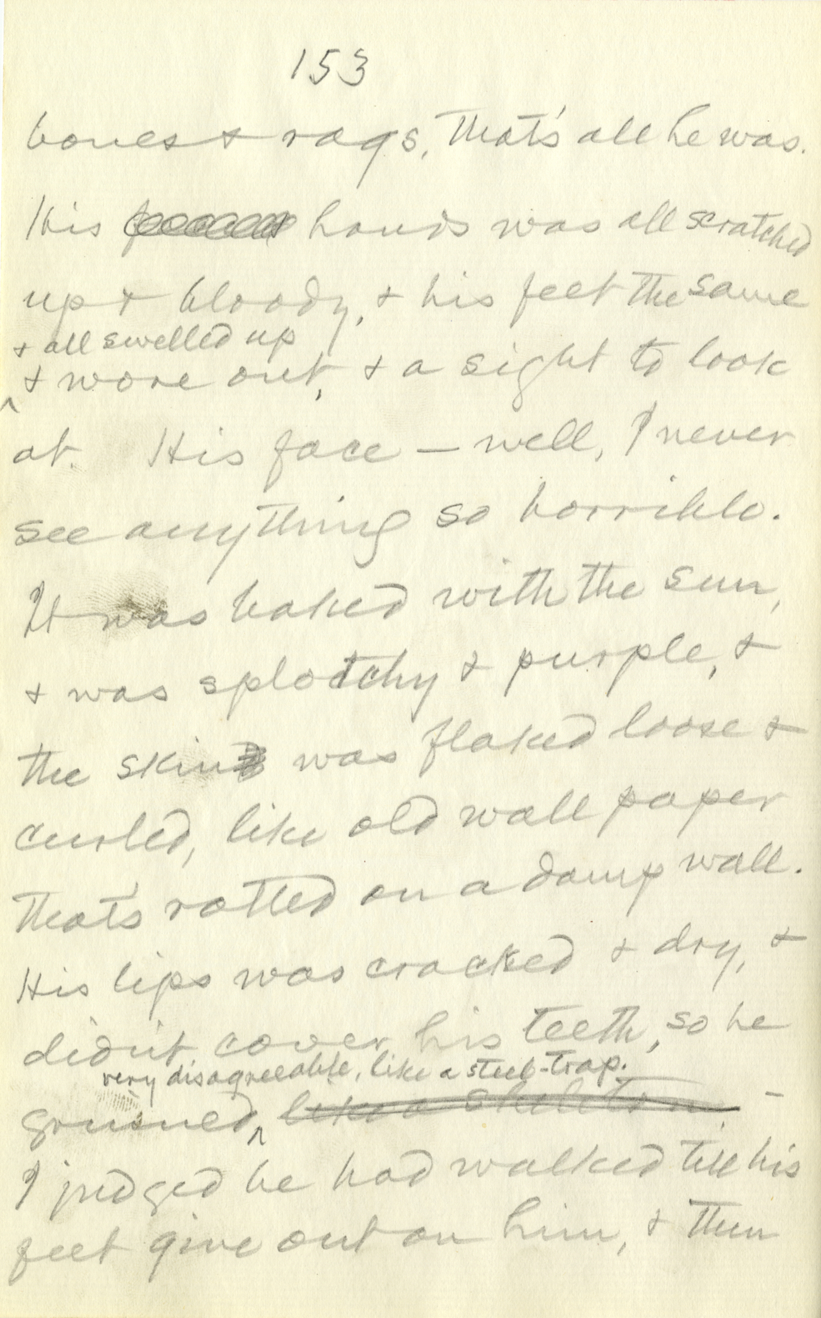 153
bones & rags, that's all he was.
His hands was all scratched
up & bloody, & his feet the same
& all swelled up
& wore out, & a sight to look
at. His face — well, I never
see anything so horrible.
It was baked with the sun,
& was splotchy & purple, &
the skin was flaked loose &
curled, like old wall paper
that's rotted on a damp wall.
His lips was cracked & dry, &
didn't cover his teeth, so he
very disagreeable, like a steel-trap.
grinned like a skeleton. –
I judged he had walked till his
feet give out on him, & then